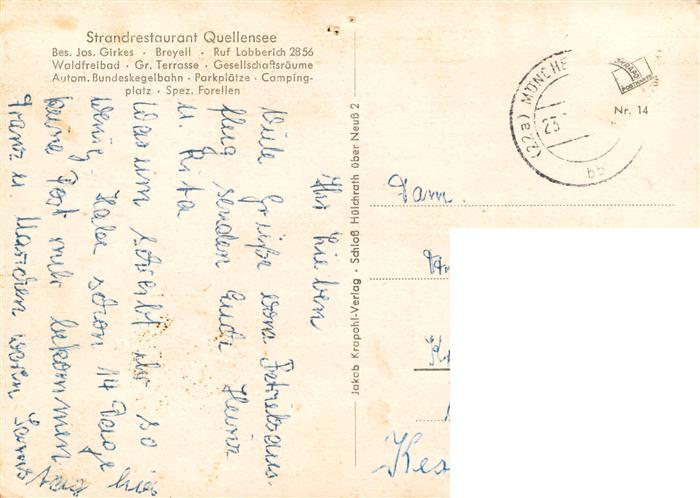 Strandrestaurant Quellensee
Bes. Jos. Girkes · Breyell · Ruf Lobberich 2856
Waldfreibad · Gr. Terrasse · Gesellschaftsräume
Autom. Bundeskegelbahn · Parkplätze · Camping-
platz · Spez. Forellen
Ihr Lieben
Viele Grüße vom Betriebsaus-
flug senden Euch Heinz
u. Rita
Warum schreibt ihr so
wenig. Habe schon 14 Tage
keine Post mehr bekommen
Franz u. waren
hier
Jakob Krapohl-Verlag · Schloß Hülchrath über Neuß 2
(22a) MÜNCHE
23.
bb
Nr. 14
Fam.